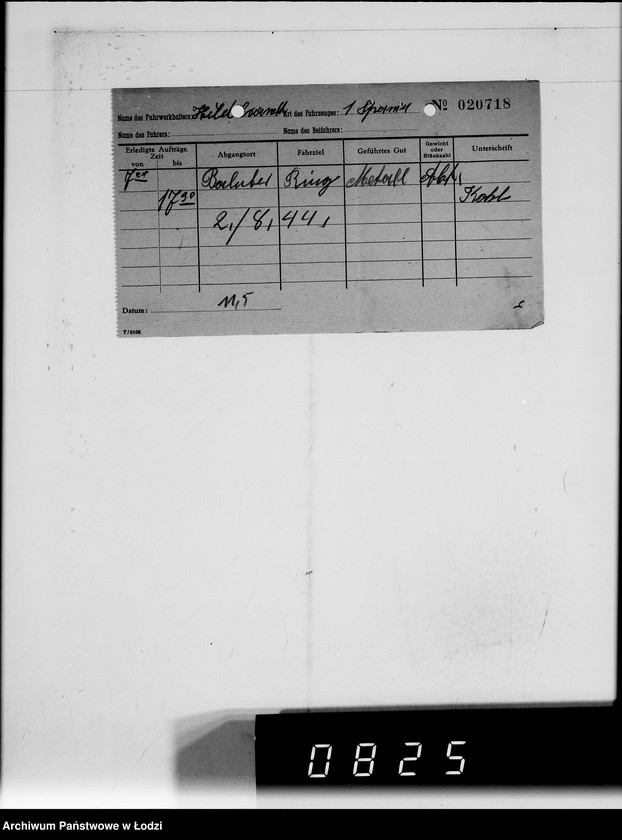 Name des Fuhrwerkhalters: Art des Fahrzeuges: 1 № 020718
Name des Fahrers: Name des Beifahrers:
Erledigte Aufträge Zeit von bis Abgangsort Fahrziel Geführtes Gut Gewicht oder Stückzahl Unterschrift
7 Baluter Ring Metall
17 30
2./8. 44.
Datum: 11,5
T/0106
0825
Archiwum Państwowe w Łodzi